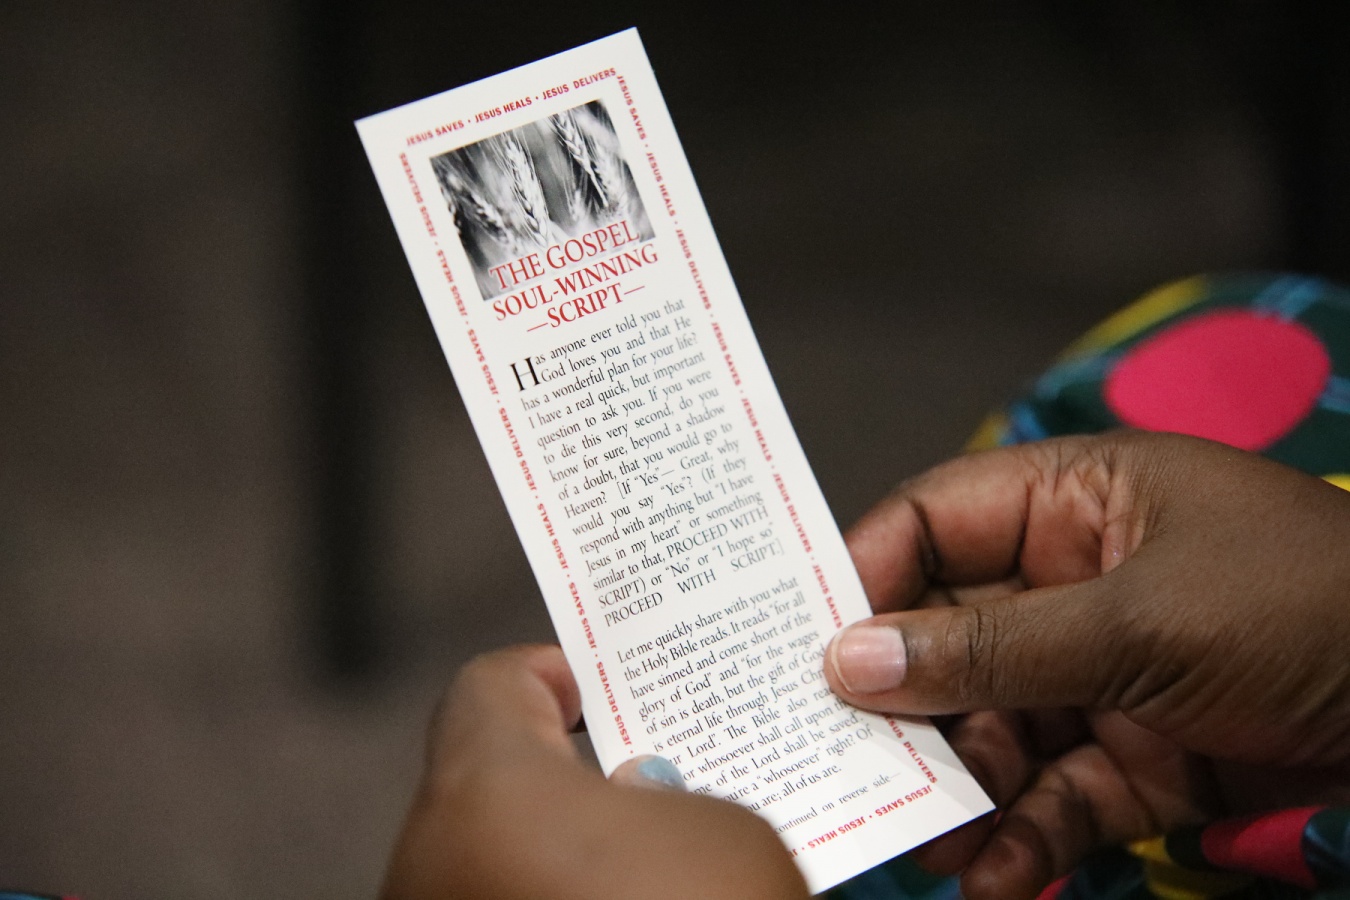 JESUS SAVES • JESUS HEALS • JESUS DELIVERS
JESUS SAVES • JESUS HEALS • JESUS DELIVERS • JESUS SAVES • JESUS HEALS • JESUS DELIVERS • JESUS SAVES
DELIVERS
JESUS DELIVERS • JESUS HEALS • JESUS SAVES • JESUS DELIVERS • JESUS HEALS • JESUS SAVES • JESUS DELIVERS •
THE GOSPEL
SOUL-WINNING
—SCRIPT—
Has anyone ever told you that
God loves you and that He
has a wonderful plan for your life?
I have a real quick, but important
question to ask you. If you were
to die this very second, do you
know for sure, beyond a shadow
of a doubt, that you would go to
Heaven? [If "Yes"— Great, why
would you say "Yes"? (If they
respond with anything but "I have
Jesus in my heart" or something
similar to that, PROCEED WITH
SCRIPT) or "No" or "I hope so"
PROCEED WITH SCRIPT.]
Let me quickly share with you what
the Holy Bible reads. It reads "for all
have sinned and come short of the
glory of God" and "for the wages
of sin is death, but the gift of God
is eternal life through Jesus
Lord". The Bible also
whosoever shall call upon
of the Lord shall be saved".
a "whosoever" right? Of
are; all of us are.
continued on reverse side—
JESUS HEALS • JESUS SAVES